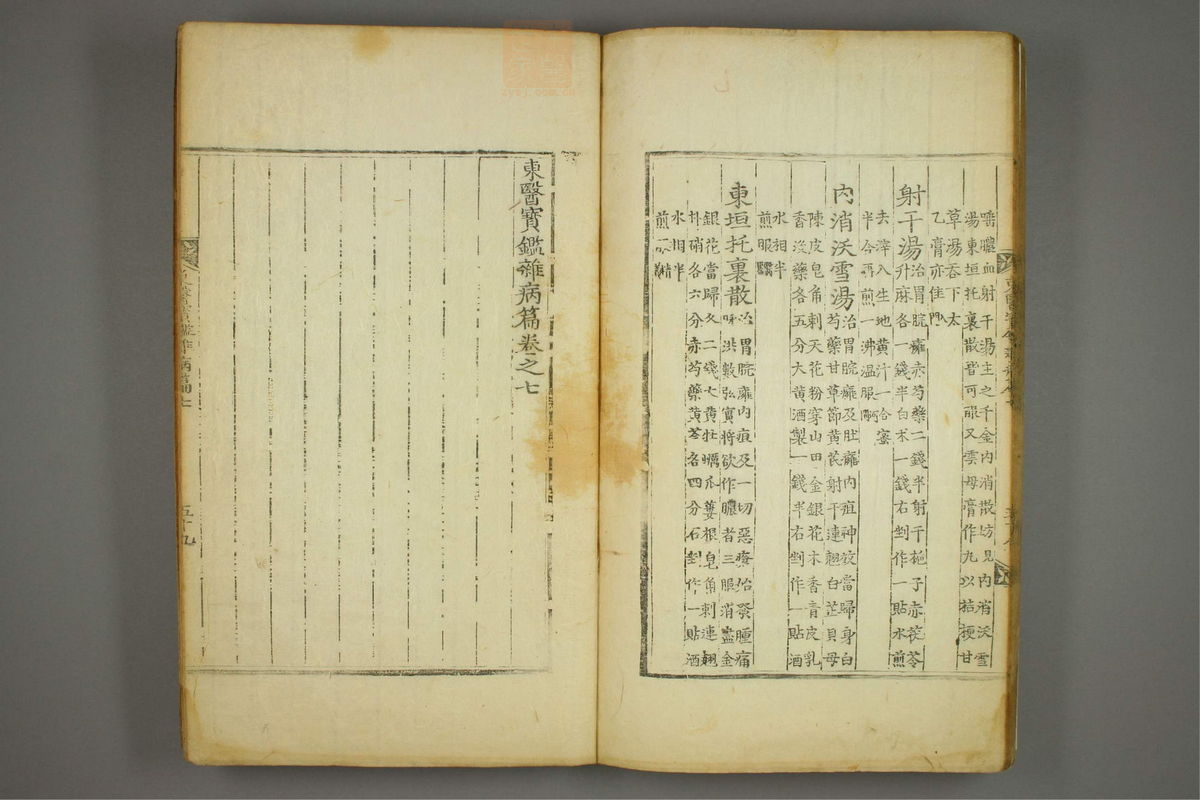 嚥膿血射干湯主之千金內消散方見內消沃雪
湯東垣托裏散皆可服又雲母膏作丸以桔梗甘
草湯呑下太
乙膏亦佳
射干湯
治胃脘癰赤芍藥二錢半射干梔子赤茯苓
升麻各一錢半白朮一錢右剉作一貼水煎
去滓入生地黃汁一合蜜
半合再煎一沸溫服
內消沃雪湯
治胃脘癰及肚癰內疽神效當歸身白
芍藥甘草節黃芪射干連翹白芷貝母
陳皮皂角刺天花粉穿山甲金銀花木香青皮乳
香沒藥各五分大黃酒製一錢半右剉作一貼酒
水相半
煎服醫鑑
東垣托裏散
治胃脘癰內疽及一切惡瘡始發腫痛
脉洪數弦實將欲作膿者三服消盡金
銀花當歸各二錢大黃牡蠣瓜蔞根皂角刺連翹
朴硝各六分赤芍藥黃芩各四分右剉作一貼酒
水相半
煎服精義
東醫寶鑑雜病篇卷之七
東醫寶鑑雜病篇七
五十九